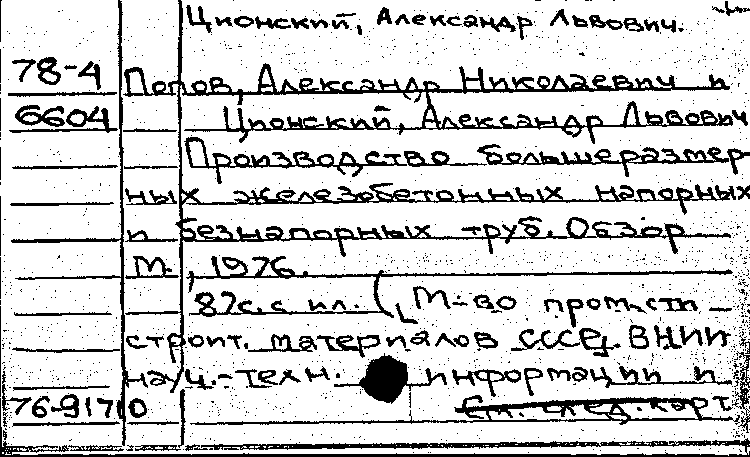 Ционский, Александр Львович.
78-4 Попов, Александр Николаевич и
6604 Ционский, Александр Львович
Производство большеразмер
ных железобетонных напорных
и безнапорных труб. Обзор
М., 1976.
87с.с ил. (М-во пром-сти
строит. материалов СССР. ВНИИ
науч.-техн. информации и
76-91710 См. след. карт